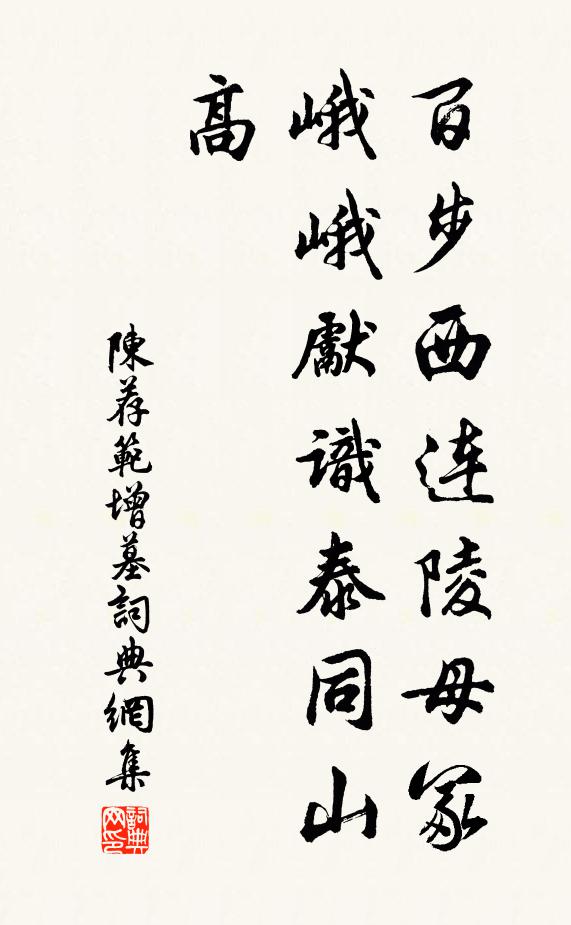 百步西連陵母冢
峨峨獻識泰同山
高
陳荐範增墓詞典網集
詞典网印